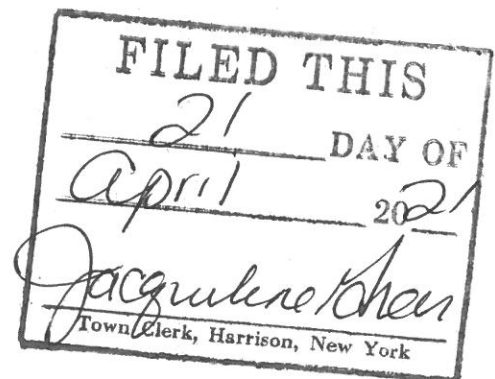 FILED THIS
21 DAY OF
April 2021
Jacqueline
Town Clerk, Harrison, New York